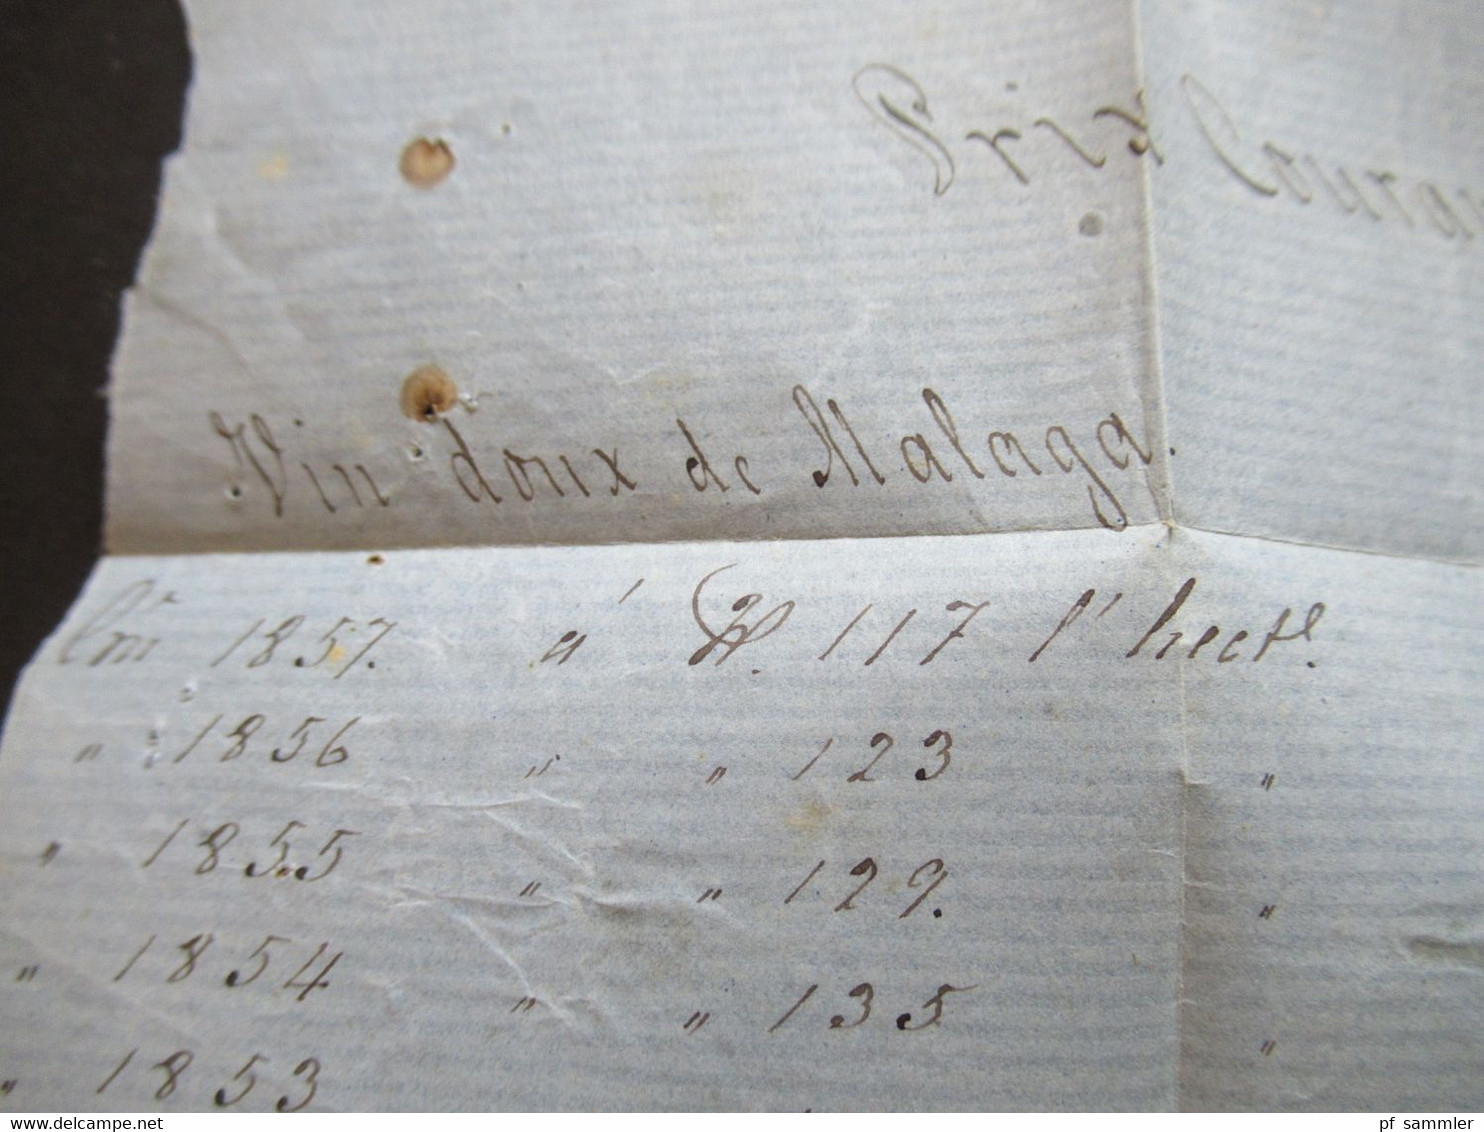 Prix Couran
Vin doux de Malaga.
1857. à 117 l'hectl.
" 1856 " " 123 "
" 1855 " " 129. "
" 1854 " " 135 "
" 1853
www.delcampe.net
pf_sammler